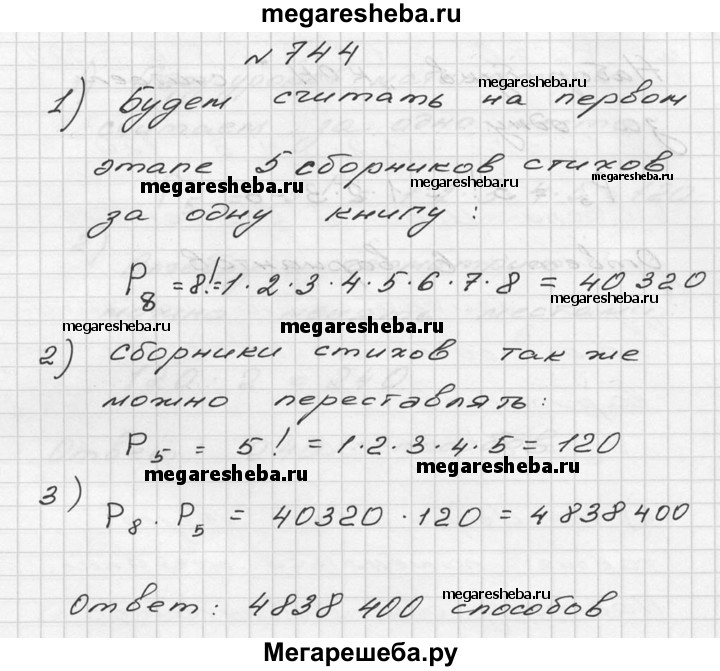 megaresheba.ru
№ 744
megaresheba.ru
1) Будем считать на первом
этапе 5 сборников стихов
megaresheba.ru megaresheba.ru megaresheba.ru
за одну книгу:
P8 = 8! = 1·2·3·4·5·6·7·8 = 40320
megaresheba.ru megaresheba.ru megaresheba.ru
2) сборники стихов так же
можно переставлять:
P5 = 5! = 1·2·3·4·5 = 120
megaresheba.ru megaresheba.ru
3)
P8 · P5 = 40320 · 120 = 4838400
megaresheba.ru
Ответ: 4838 400 способов
Мегарешеба.ру